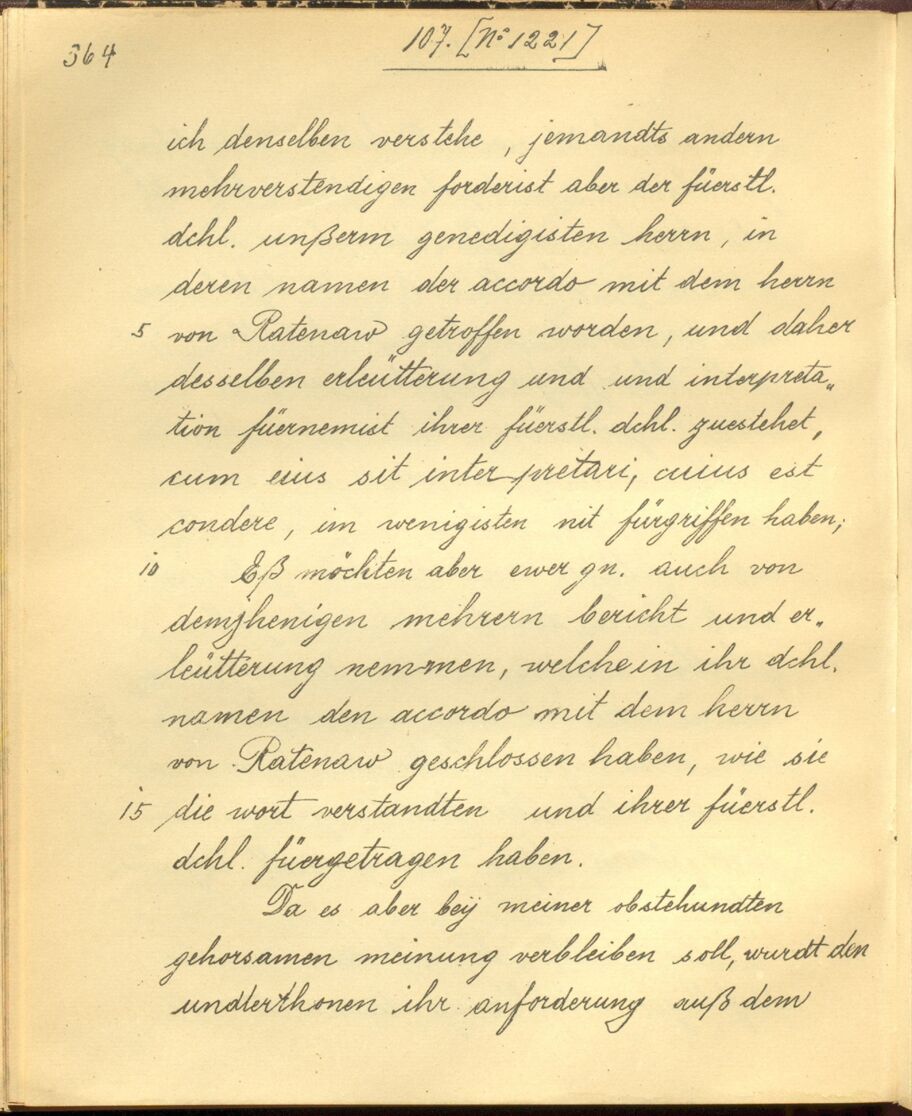 364
107. [No 1221]
ich denselben verstehe, jemandts andern
mehrverstendigen forderist aber der füerstl.
dchl. unßerm genedigisten herrn, in
deren namen der accordo mit dem herrn
5 von Ratenaw getroffen worden, und daher
desselben erleütterung und und interpreta„
tion füernemist ihrer füerstl. dchl. zuestehet,
cum eius sit interpretari, cuius est
condere, im wenigisten nit fürgriffen haben;
10 Eß möchten aber ewer gn. auch von
demjhenigen mehrern bericht und er„
leütterung nemmen, welche in ihr dchl.
namen den accordo mit dem herrn
von Ratenaw geschlossen haben, wie sie
15 die wort verstandten und ihrer füerstl.
dchl. füergetragen haben.
Da es aber beÿ meiner obstehundten
gehorsamen meinung verbleiben soll, wurdt den
undterthonen ihr anforderung auß dem